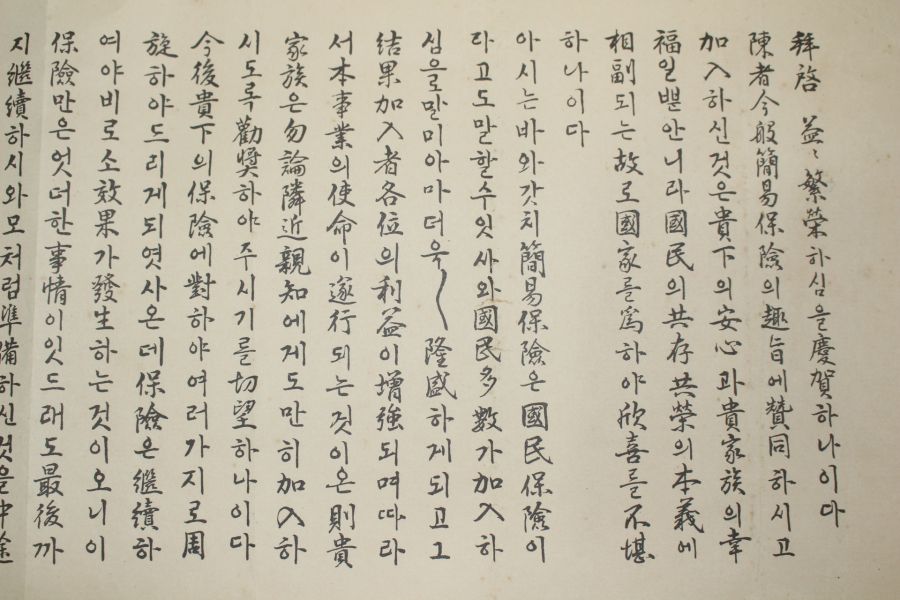 拜啓 益〻繁榮하심을慶賀하나이다
陳者今般簡易保險의趣旨에贊同하시고
加入하신것은貴下의安心과貴家族의幸
福일뿐안니라國民의共存共榮의本義에
相副되는故로國家를爲하야欣喜를不堪
하나이다
아시는바와갓치簡易保險은國民保險이
라고도말할수잇사와國民多數가加入하
심을말미아마더욱〳〵隆盛하게되고그
結果加入者各位의利益이增强되며따라
서本事業의使命이遂行되는것이온則貴
家族은勿論隣近親知에게도만히加入하
시도록勸奬하야주시기를切望하나이다
今後貴下의保險에對하야여러가지로周
旋하야드리게되엿사온데保險은繼續하
여야비로소效果가發生하는것이오니이
保險만은엇더한事情이잇드래도最後까
지繼續하시와모처럼準備하신것을中途